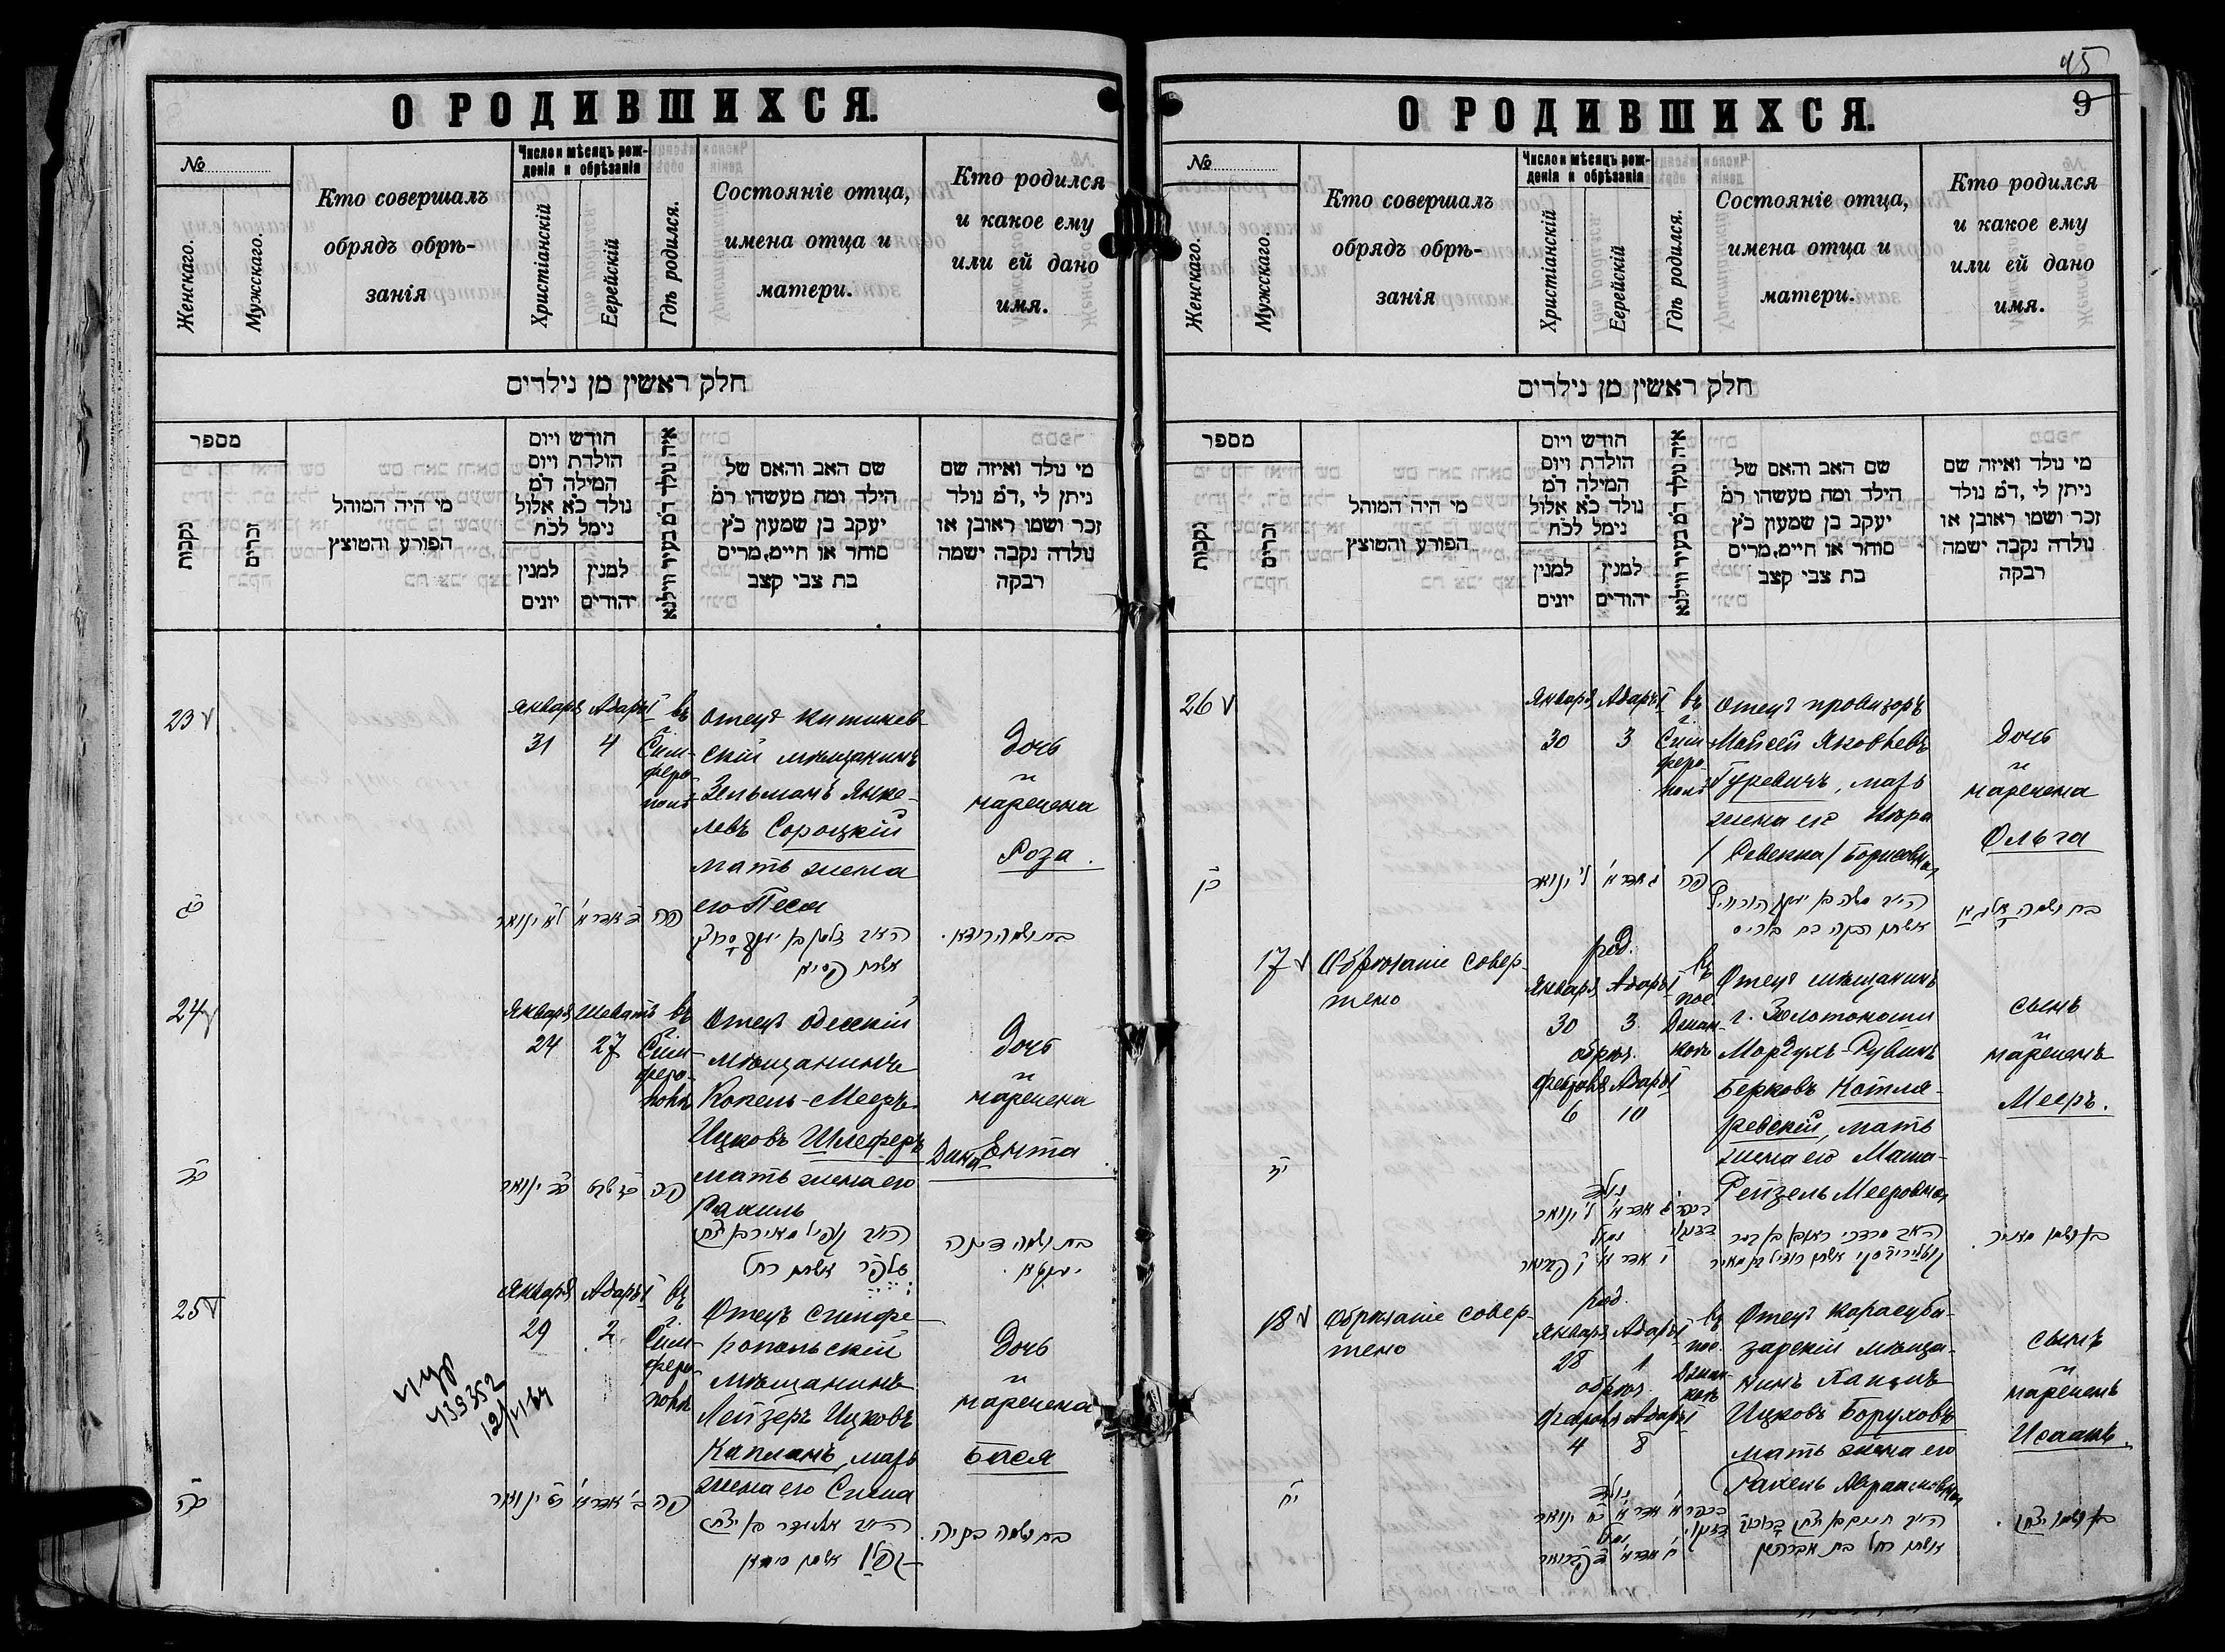 О РОДИВШИХСЯ.
№
Женскаго.
Мужсскаго.
Кто совершалъ
обрядъ обрѣ-
занія
Число и мѣсяцъ рож-
денія и обрѣзанія
Христіанскій
Еерейскій
Гдѣ родился.
Состояніе отца,
имена отца и
матери.
Кто родился
и какое ему
или ей дано
имя.
חלק ראשין מן נילדים
מספר
נקבות
זכרים
מי היה המוהל
הפורע והטוצץ
חודש ויום
הולדת ויום
המילה דמ
נולד כא אלול
נימל לכח
למנין
יונים
למנין
יהודים
איה נולד דמ בעיר ווילנא
שם האב והאם של
הילד ומה מעשהו רמ
יעקב בן שמעון כץ
סוחר או חיים, מרים
בת צבי קצב
מי נולד ואיזה שם
ניתן לי, דמ נולד
זכר ושמו ראובן או
נולדה נקבה ישמה
רבקה
23
Января Адаръ I въ
31 4
г. Сим-
феро-
поль
Отецъ Кишинев-
скій мѣщанинъ
Зельманъ Янке-
левъ Сороцкій
мать жена
его Песя
Дочь
наречена
Роза.
כג
פה ד אדר א לא ינואר
24
Января Шеватъ въ
24 27
г. Сим-
феро-
полѣ
Отецъ одесскій
мѣщанинъ
Копель-Мееръ
Ицковъ Шлеферъ
мать жена его
Рахиль
Дочь
наречена
Дина Ента
כד
בת ושמה דינה
יענטא
25
Января Адаръ I въ
29 2
г. Сим-
феро-
полѣ
Отецъ симфе-
ропольскій
мѣщанинъ
Лейзеръ Ицковъ
Капланъ, мать
жена его Сима
Дочь
наречена
Бася
כה
439352
О РОДИВШИХСЯ.
45
9
№
Женскаго.
Мужсскаго.
Кто совершалъ
обрядъ обрѣ-
занія
Число и мѣсяцъ рож-
денія и обрѣзанія
Христіанскій
Еерейскій
Гдѣ родился.
Состояніе отца,
имена отца и
матери.
Кто родился
и какое ему
или ей дано
имя.
חלק ראשין מן נילדים
מספר
נקבות
זכרים
מי היה המוהל
הפורע והטוצץ
חודש ויום
הולדת ויום
המילה דמ
נולד כא אלול
נימל לכח
למנין
יונים
למנין
יהודים
איה נולד דמ בעיר ווילנא
שם האב והאם של
הילד ומה מעשהו רמ
יעקב בן שמעון כץ
סוחר או חיים, מרים
בת צבי קצב
מי נולד ואיזה שם
ניתן לי, דמ נולד
זכר ושמו ראובן או
נולדה נקבה ישמה
רבקה
26
Января Адаръ I въ
30 3
г. Сим-
феро-
поль
Отецъ провизоръ
Моисей Яковлевъ
Гуревичъ, мать
жена его
/Ревекка/ Борисовна
Дочь
наречена
Ольга
כו
בת ושמה אלגא
17
Обрѣзаніе совер-
шено
род.
Января Адаръ I
30 3
обрѣз.
Февраля Адаръ I
6 10
въ
пос.
Джан-
коѣ
Отецъ мѣщанинъ
г. Золотоноши
Мордухъ-Рувинъ
Берковъ Котля-
ревскій, мать
жена его Маша-
Рейзель Мееровна
сынъ
нареченъ
Мееръ.
יז
בן ושמו מאיר.
18
Обрѣзаніе совер-
шено
род.
Января Адаръ I
28 1
обрѣз.
Февраля Адаръ I
4 8
въ
пос.
Джан-
коѣ
Отецъ карасуба-
зарскій мѣща-
нинъ
Ицковъ Боруховъ
мать жена его
Рахель Авраамовна
сынъ
нареченъ
Исаакъ.
יח
בן ושמו יצחק.